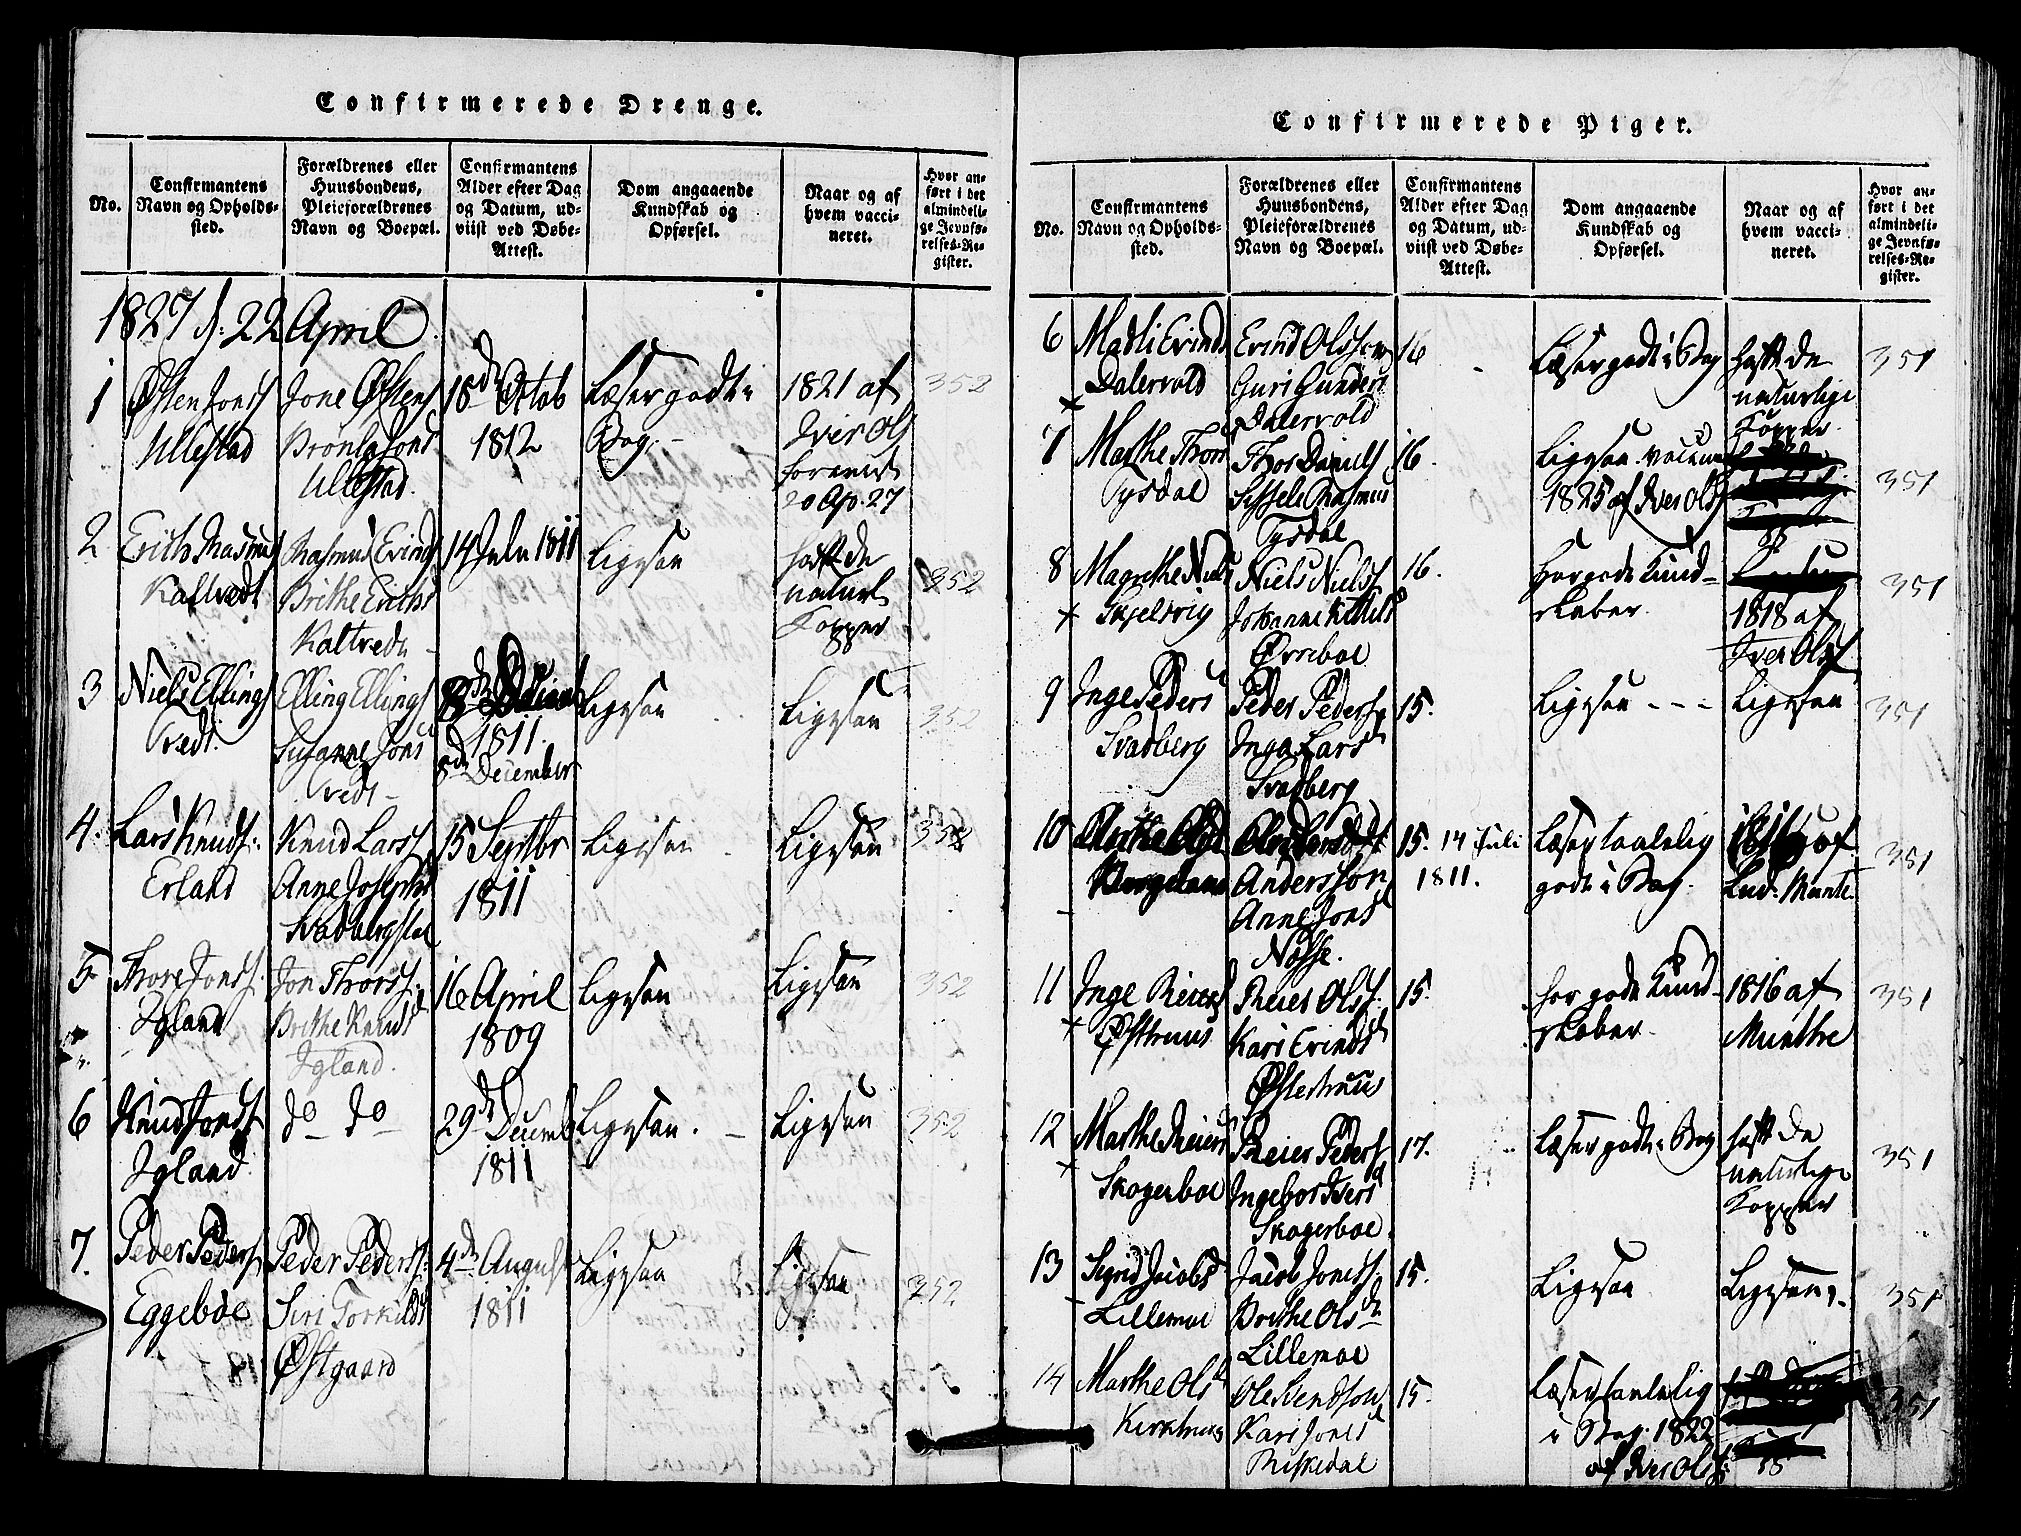 Confirmerede Drenge.
No.
Confirmantens
Navn og Opholds-
sted.
Forældrenes eller
Huusbondens,
Pleieforældrenes
Navn og Boepæl.
Confirmantens
Alder efter Dag
og Datum, ud-
viist ved Døbe-
Attest.
Dom angaaende
Kundskab og
Opførsel.
Naar og af
hvem vacci-
neret.
Hvor an-
ført i det
almindeli-
ge Jevnfø-
relses-Re-
gister.
1827 d: 22 April
1
Østen Jons
Ullestad
Jone Østens
Ullestad.
18de Octob
1812
Læser godt i
Bog.
1821 af
Iver Ols
20 Ap. 27
352
2
Erich Rasmus
Kaltvedt
Rasmus Evinds
Brithe Erichs
Kaltvedt
14 Julii 1811
Ligesaa
haft de
naturl
Kopper
352
3
Niels Ellings
Tvedt.
Elling Ellings
Susanne Jons
Tvedt
1811.
8de December
Ligesaa
Ligesaa
352
4.
Lars Knuds:
Erland
Knud Larss
Anne Josephs
Svadbergstal
15 Septbr
1811
Ligesaa
Ligesaa
352
5
Thore Jonss.
Igland
Jon Thorss.
Brithe Knuds
Igland.
16 April
1809
Ligesaa
Ligesaa
352
6
Knud Jonss
Igland
do do
29de Decemb
1811
Ligesaa.
Ligesaa
352
7.
Peder Peders
Eggeboe
Peder Pederss:
Siri Torkilds
Østgaard
4de August
1811
Ligesaa
Ligesaa
352
Confirmerede Piger.
No.
Confirmantens
Navn og Opholds-
sted.
Forældrenes eller
Huusbondens,
Pleieforældrenes
Navn og Boepæl.
Confirmantens
Alder efter Dag
og Datum, ud-
viist ved Døbe-
Attest.
Dom angaaende
Kundskab og
Opførsel.
Naar og af
hvem vacci-
neret.
Hvor an-
ført i det
almindeli-
ge Jevnfø-
relses-Re-
gister.
6
Madli Evinds
Dalevold
Evind Olsson
Guri Gunders
Dalevold
16
Læser godt i Bog
haft de
naturlige
Kopper.
351
7
Marthe Thors
Tysdal
Thor Daniels
Sissele Rasmus
Tysdal
16.
Ligesaa. vaccine
1825 af Iver Ols
351
8
Magrethe Niels
Niels Nielss
Johanne Kittels
Ørreboe
16.
Har gode Kund-
skaber.
1818 af
Iver Ols
351
9
Inge Peders
Svadberg
Peder Pederss
Inga Lars
Svadberg
15.
Ligesaa
Ligesaa
351
10
Andersson
Anne Jons
Nosse.
15. 14 Juli
1811.
Læser taalelig
godt i Bog.
af
Lud: Munte
351
11
Inge Reiers
Østhuus
Reier Olss.
Kari Evinds
Østerhuus
15.
har gode Kund
skaber.
1816 af
Munthe
351
12
Marthe Reiers
Skogerboe
Reier Peders
Ingebor Ivers
Skogerboe.
17.
Læser godt i Bog
haft de
naturlige
Kopper
351
13
Sigrid Jacobs
Lillemoe
Jacob Jonss.
Brithe Ols
Lillemoe
15.
Ligesaa
Ligesaa.
351
14
Marthe Ols
Kirkhuus
Ole Svendson
Kari Jons
Riskedal
15.
Læser taalelig
i Bog. 1822
af Iver Ols:
351